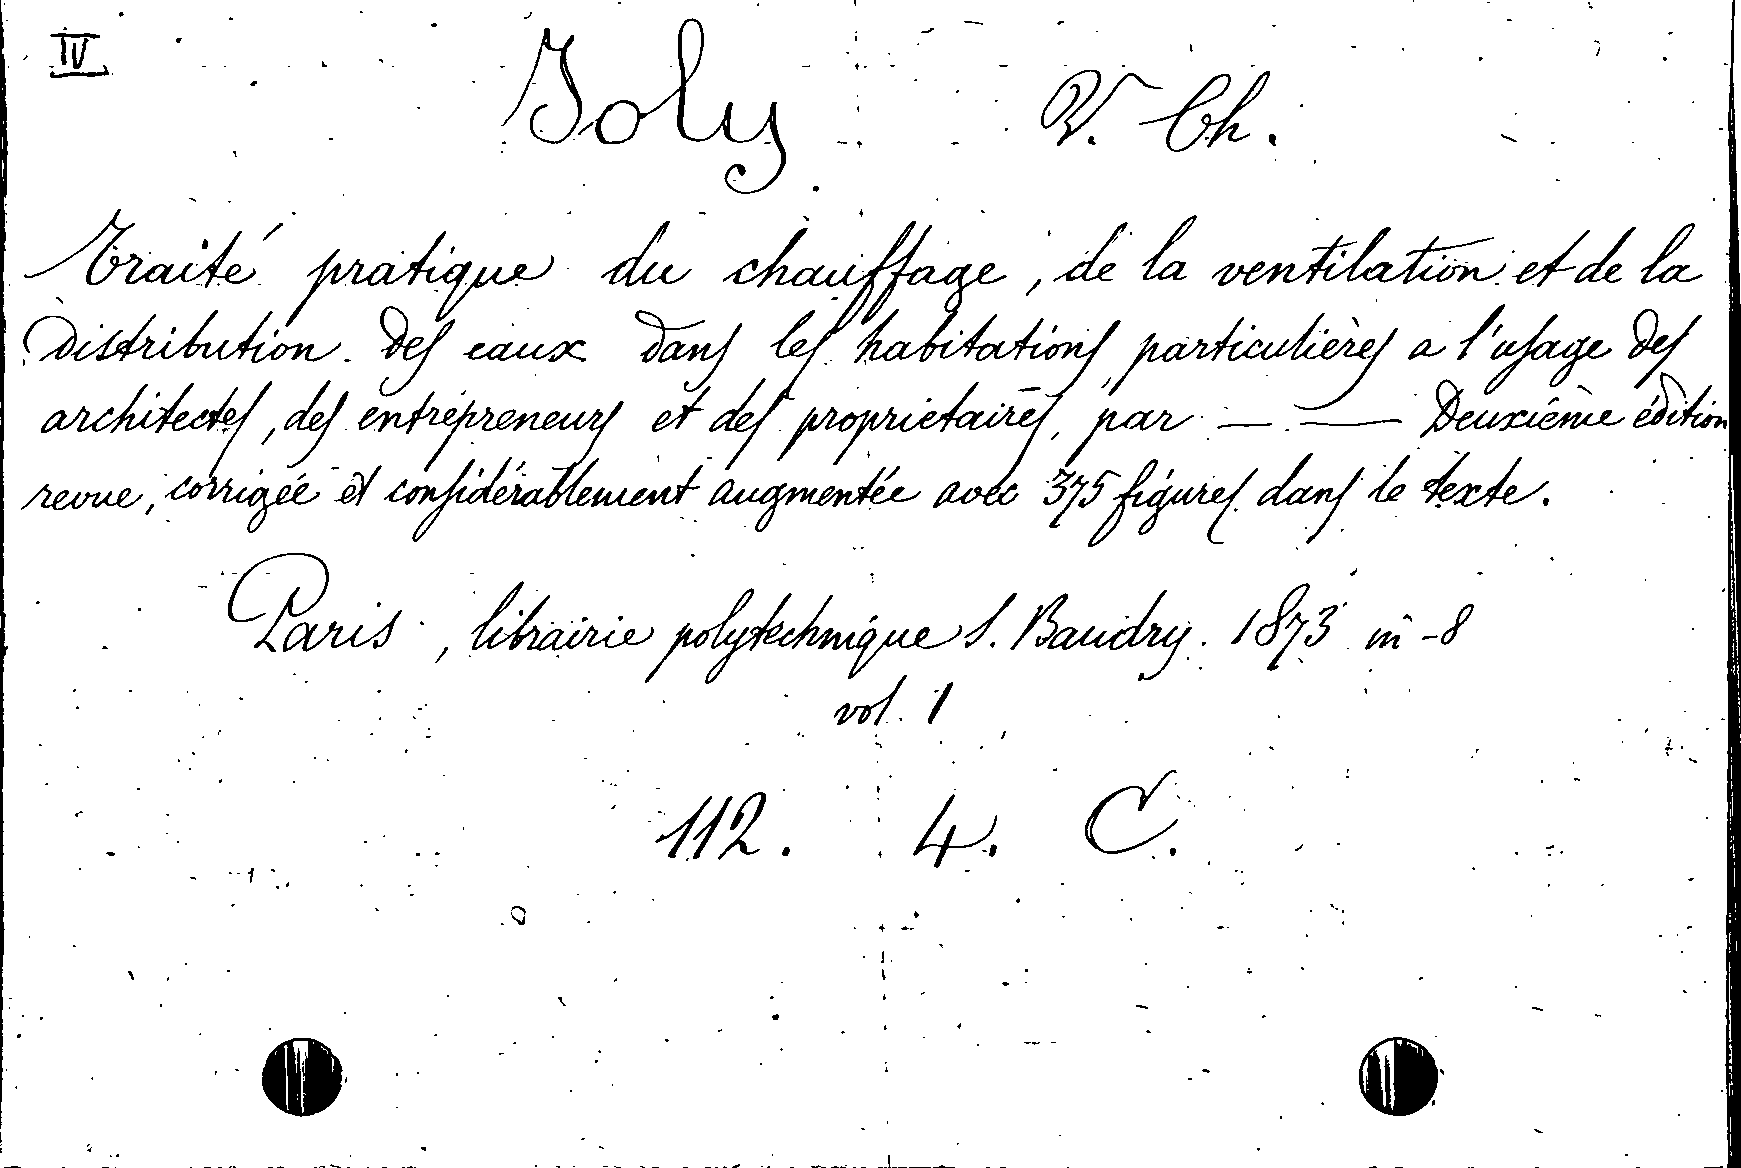 IV
Joly V. Ch.
Traité pratique du chauffage, de la ventilation et de la
distribution des eaux dans les habitations particulières a l'usage des
architectes, des entrepreneurs et des proprietaires, par — — Deuxième édition
revue, corrigée et considérablement augmentée avec 375 figures dans le texte.
Paris, librairie polytechnique S. Baudry. 1873 in-8
vol. 1
112. 4. C.